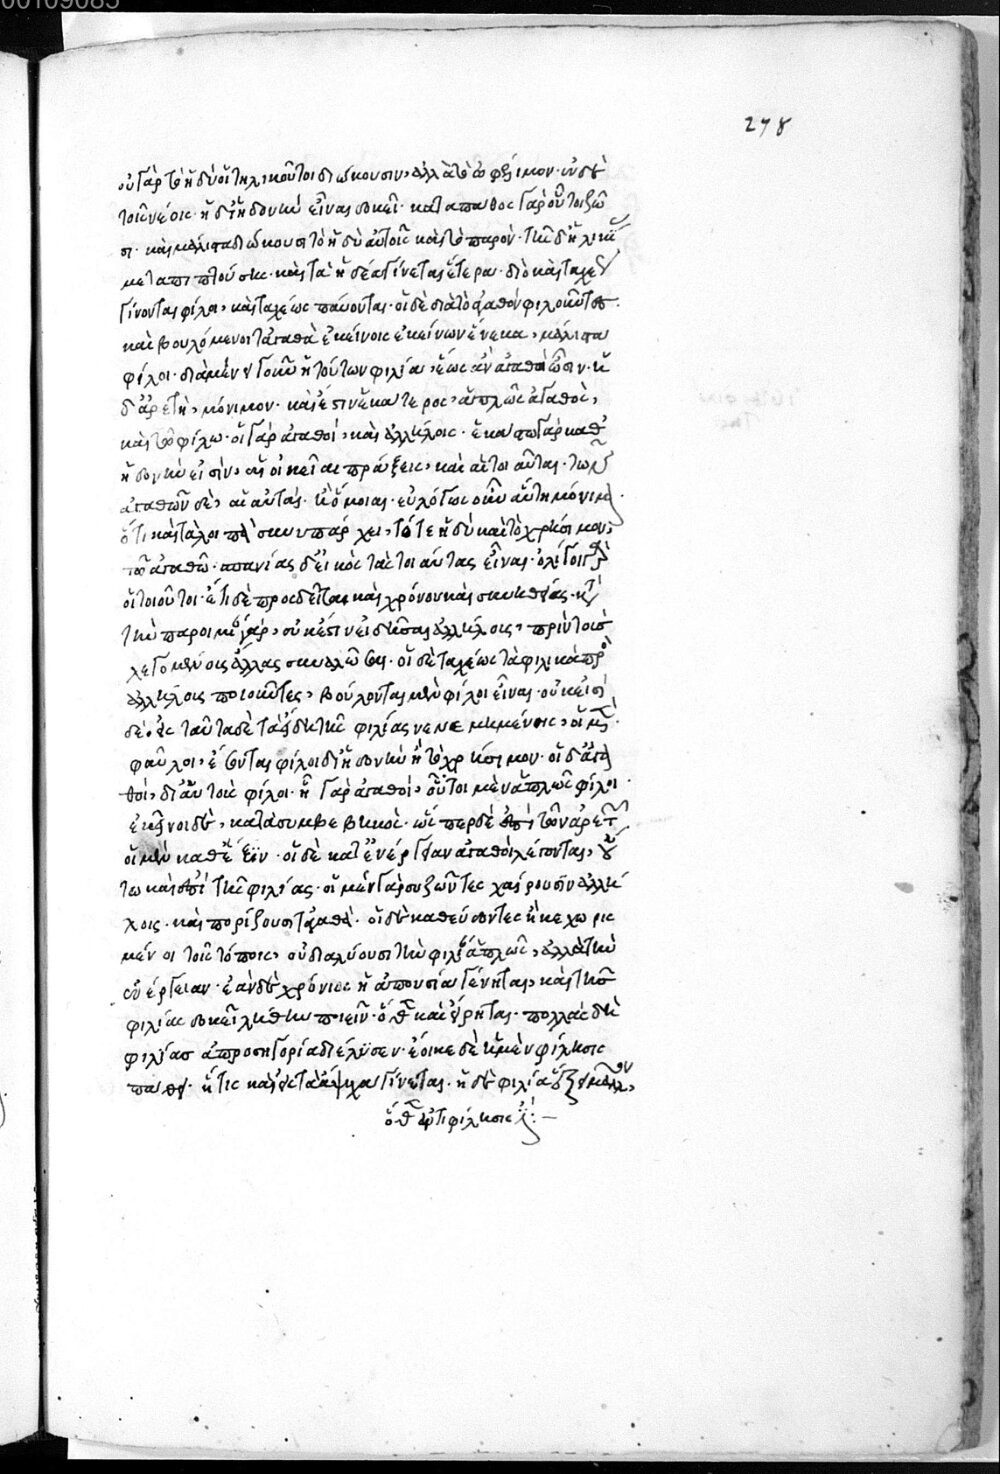 00109085
278
οὐ γὰρ τὸ ἡδὺ οἱ τηλικοῦτοι διώκουσιν, ἀλλὰ τὸ ὠφέλιμον· ἡ δὲ
τοῖς νέοις· ἡ δι' ἡδονὴν εἶναι δοκεῖ· κατὰ πάθος γὰρ οὗτοι ζῶ
σι· καὶ μάλιστα διώκουσι τὸ ἡδὺ αὐτοῖς καὶ τὸ παρόν· τῆς δ' ἡλικίας
μεταπιπτούσης· καὶ τὰ ἡδέα γίνεται ἕτερα· διὸ καὶ ταχέως
γίνονται φίλοι, καὶ ταχέως παύονται· οἱ δὲ διὰ τὸ ἀγαθὸν φιλοῦντες·
καὶ βουλόμενοι τἀγαθὰ ἐκείνοις ἐκείνων ἕνεκα, μάλιστα
φίλοι· διαμένει γοῦν ἡ τούτων φιλία, ἕως ἂν ἀγαθοὶ ὦσιν· ἡ
δ' ἀρετὴ, μόνιμον· καὶ ἔστιν ἑκάτερος, ἁπλῶς ἀγαθὸς,
καὶ τῷ φίλῳ· οἱ γὰρ ἀγαθοὶ, καὶ ἀλλήλοις· ἑκάστῳ γὰρ καθ'
ἡδονὴν εἰσὶν, αἱ οἰκεῖαι πράξεις, καὶ αἱ τοιαῦται· τῶν
ἀγαθῶν δὲ, αἱ αὐταὶ· ἢ ὅμοιαι· εὐλόγως οὖν αὕτη μόνιμος·
ὅτι καὶ τἆλλα πάσῃ ὑπάρχει, τό τε ἡδὺ καὶ τὸ χρήσιμον,
τοῦ ἀγαθοῦ· σπανίας δ' εἰκὸς τὰς τοιαύτας εἶναι· ὀλίγοι γὰρ
οἱ τοιοῦτοι· ἔτι δὲ προσδεῖται καὶ χρόνου καὶ συνηθείας· κατὰ
τὴν παροιμίαν γὰρ, οὐκ ἔστιν εἰδῆσαι ἀλλήλους, πρὶν τοὺς
λεγομένους ἅλας συναλῶσαι· οἱ δὲ ταχέως τὰ φιλικὰ πρὸς
ἀλλήλους ποιοῦντες, βούλονται μὲν φίλοι εἶναι· οὐκ εἰσὶ
φαῦλοι, ἔσονται φίλοι δι' ἡδονὴν ἢ τὸ χρήσιμον· οἱ δ' ἀγα
θοὶ, δι' αὑτοὺς φίλοι· ᾗ γὰρ ἀγαθοὶ, οὗτοι μὲν ἁπλῶς φίλοι·
ἐκεῖνοι δὲ, κατὰ συμβεβηκὸς· ὥσπερ δὲ ἐπὶ τῶν ἀρετῶν,
οἱ μὲν καθ' ἕξιν· οἱ δὲ κατ' ἐνέργειαν ἀγαθοὶ λέγονται, οὕ
τω καὶ ἐπὶ τῆς φιλίας· οἱ μὲν γὰρ συζῶντες χαίρουσιν ἀλλή
λοις· καὶ πορίζουσι τἀγαθὰ· οἱ δὲ καθεύδοντες ἢ κεχωρισ
μένοι τοῖς τόποις, οὐ διαλύουσι τὴν φιλίαν ἁπλῶς, ἀλλὰ τὴν
ἐνέργειαν· ἐὰν δὲ χρόνιος ἡ ἀπουσία γένηται, καὶ τῆς
φιλίας δοκεῖ λήθην ποιεῖν· ὅθεν καὶ εἴρηται· πολλὰς δὴ
φιλίας ἀπροσηγορία διέλυσεν· ἔοικε δὲ ἡ μὲν φίλησις
πάθει· ἥτις καὶ εἰς τὰ ἄψυχα γίνεται· ἡ δὲ φιλία ἕξει μᾶλλον,